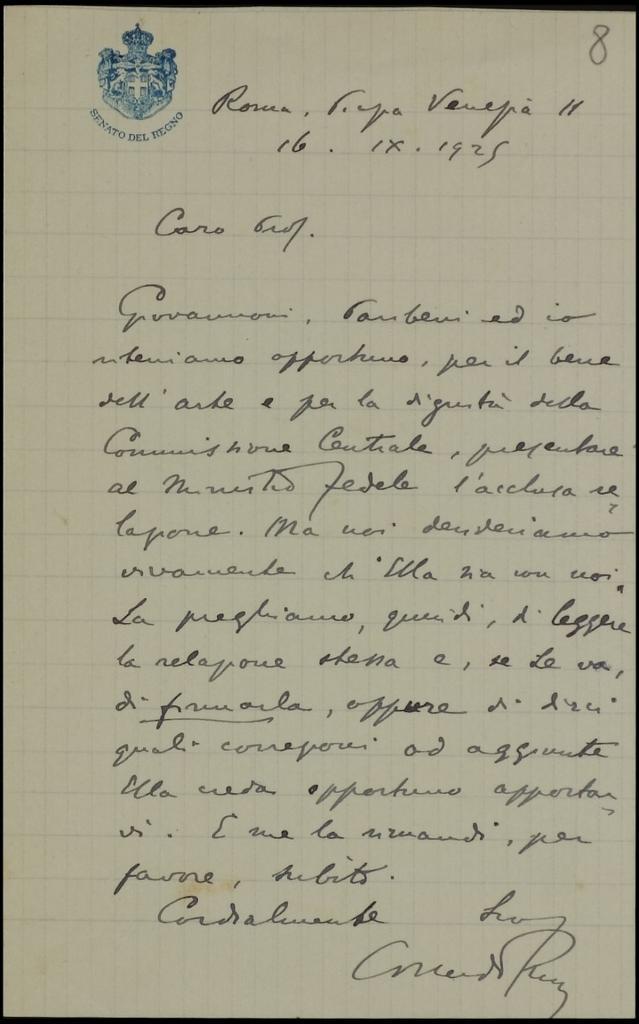 8
SENATO DEL REGNO
Roma, Piazza Venezia 11
16 . IX . 1925
Caro Prof.
Giovannoni, Paribeni ed io
riteniamo opportuno, per il bene
dell'arte e per la dignità della
Commissione Centrale, presentare
al Ministro Fedele l'acclusa re
lazione. Ma noi desideriamo
vivamente ch'Ella sia con noi.
La preghiamo, quindi, di leggere
la relazione stessa e, se Le va,
di firmarla, oppure di dirci
quali correzioni od aggiunte
Ella creda opportuno apportar
vi. E me la rimandi, per
favore, subito.
Cordialmente Suo
Corrado Ricci